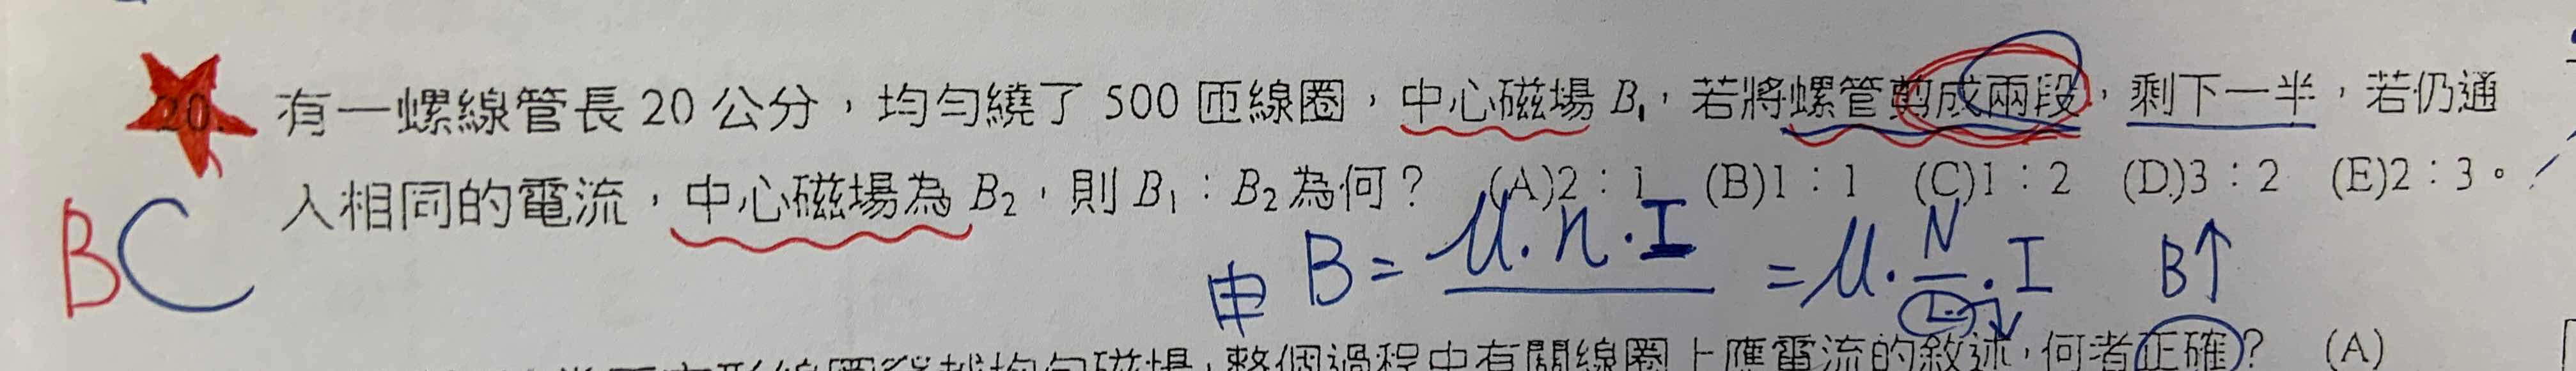 20. 有一螺線管長 20 公分，均勻繞了 500 匝線圈，中心磁場 B₁，若將螺管剪成兩段，剩下一半，若仍通
入相同的電流，中心磁場為 B₂，則 B₁：B₂ 為何？ (A)2：1 (B)1：1 (C)1：2 (D)3：2 (E)2：3。
BC
由 B = μ·n·I = μ·N/L·I B↑
線圈 均勻磁場，整個過程中有關線圈上應電流的敘述，何者正確？ (A)